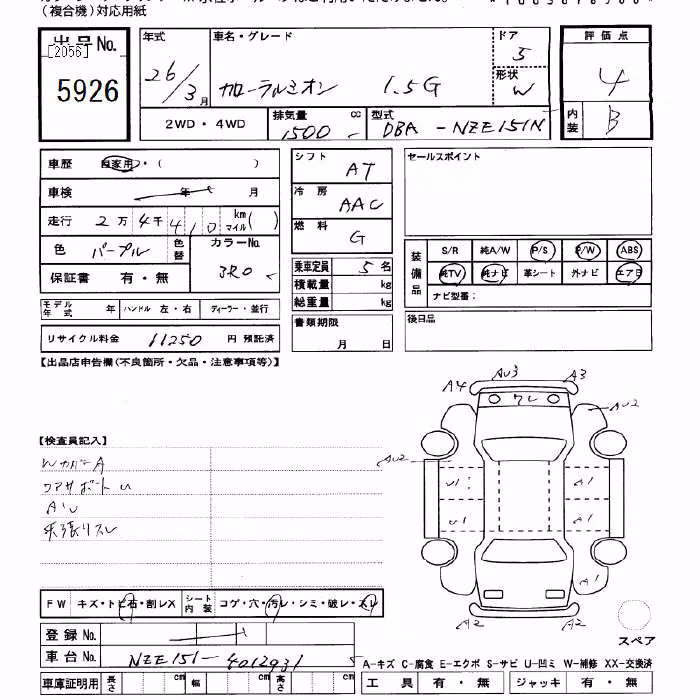 (複合機)対応用紙
出品No.
[2056]
5926
年式
26/3月
車名・グレード
カローラルミオン 1.5G
ドア
5
形状
W
評価点
4
内装
B
2WD・4WD
排気量
1500 cc
型式
DBA-NZE151N
車歴
自家用・( )
車検 年 月
走行 2万4千410 km マイル( )
色 パープル
色替
カラーNo.
3R0
保証書 有・無
モデル年式 年
ハンドル 左・右
ディーラー・並行
リサイクル料金 11250 円 預託済
シフト
AT
冷房
AAC
燃料
G
乗車定員 5名
積載量 kg
総重量 kg
書類期限
月 日
セールスポイント
装備品
S/R 純A/W P/S P/W ABS
純TV 純ナビ 革シート 外ナビ エアB
ナビ型番:
後日品
【出品店申告欄(不良箇所・欠品・注意事項等)】
【検査員記入】
WカバーA
A・U
天張りスレ
A4 AU3 A3
ワレ
AU2
AU2
U1 A1
U1 A1
A1
A2 A2
スペア
FW キズ・トビ石・割レX
シート内装 コゲ・穴・汚レ・シミ・破レ・スレ
登録No.
車台No. NZE151-4012931 5
車庫証明用 長さ cm 幅 cm 高さ cm
A-キズ C-腐食 E-エクボ S-サビ U-凹ミ W-補修 XX-交換済
工具 有・無 ジャッキ 有・無